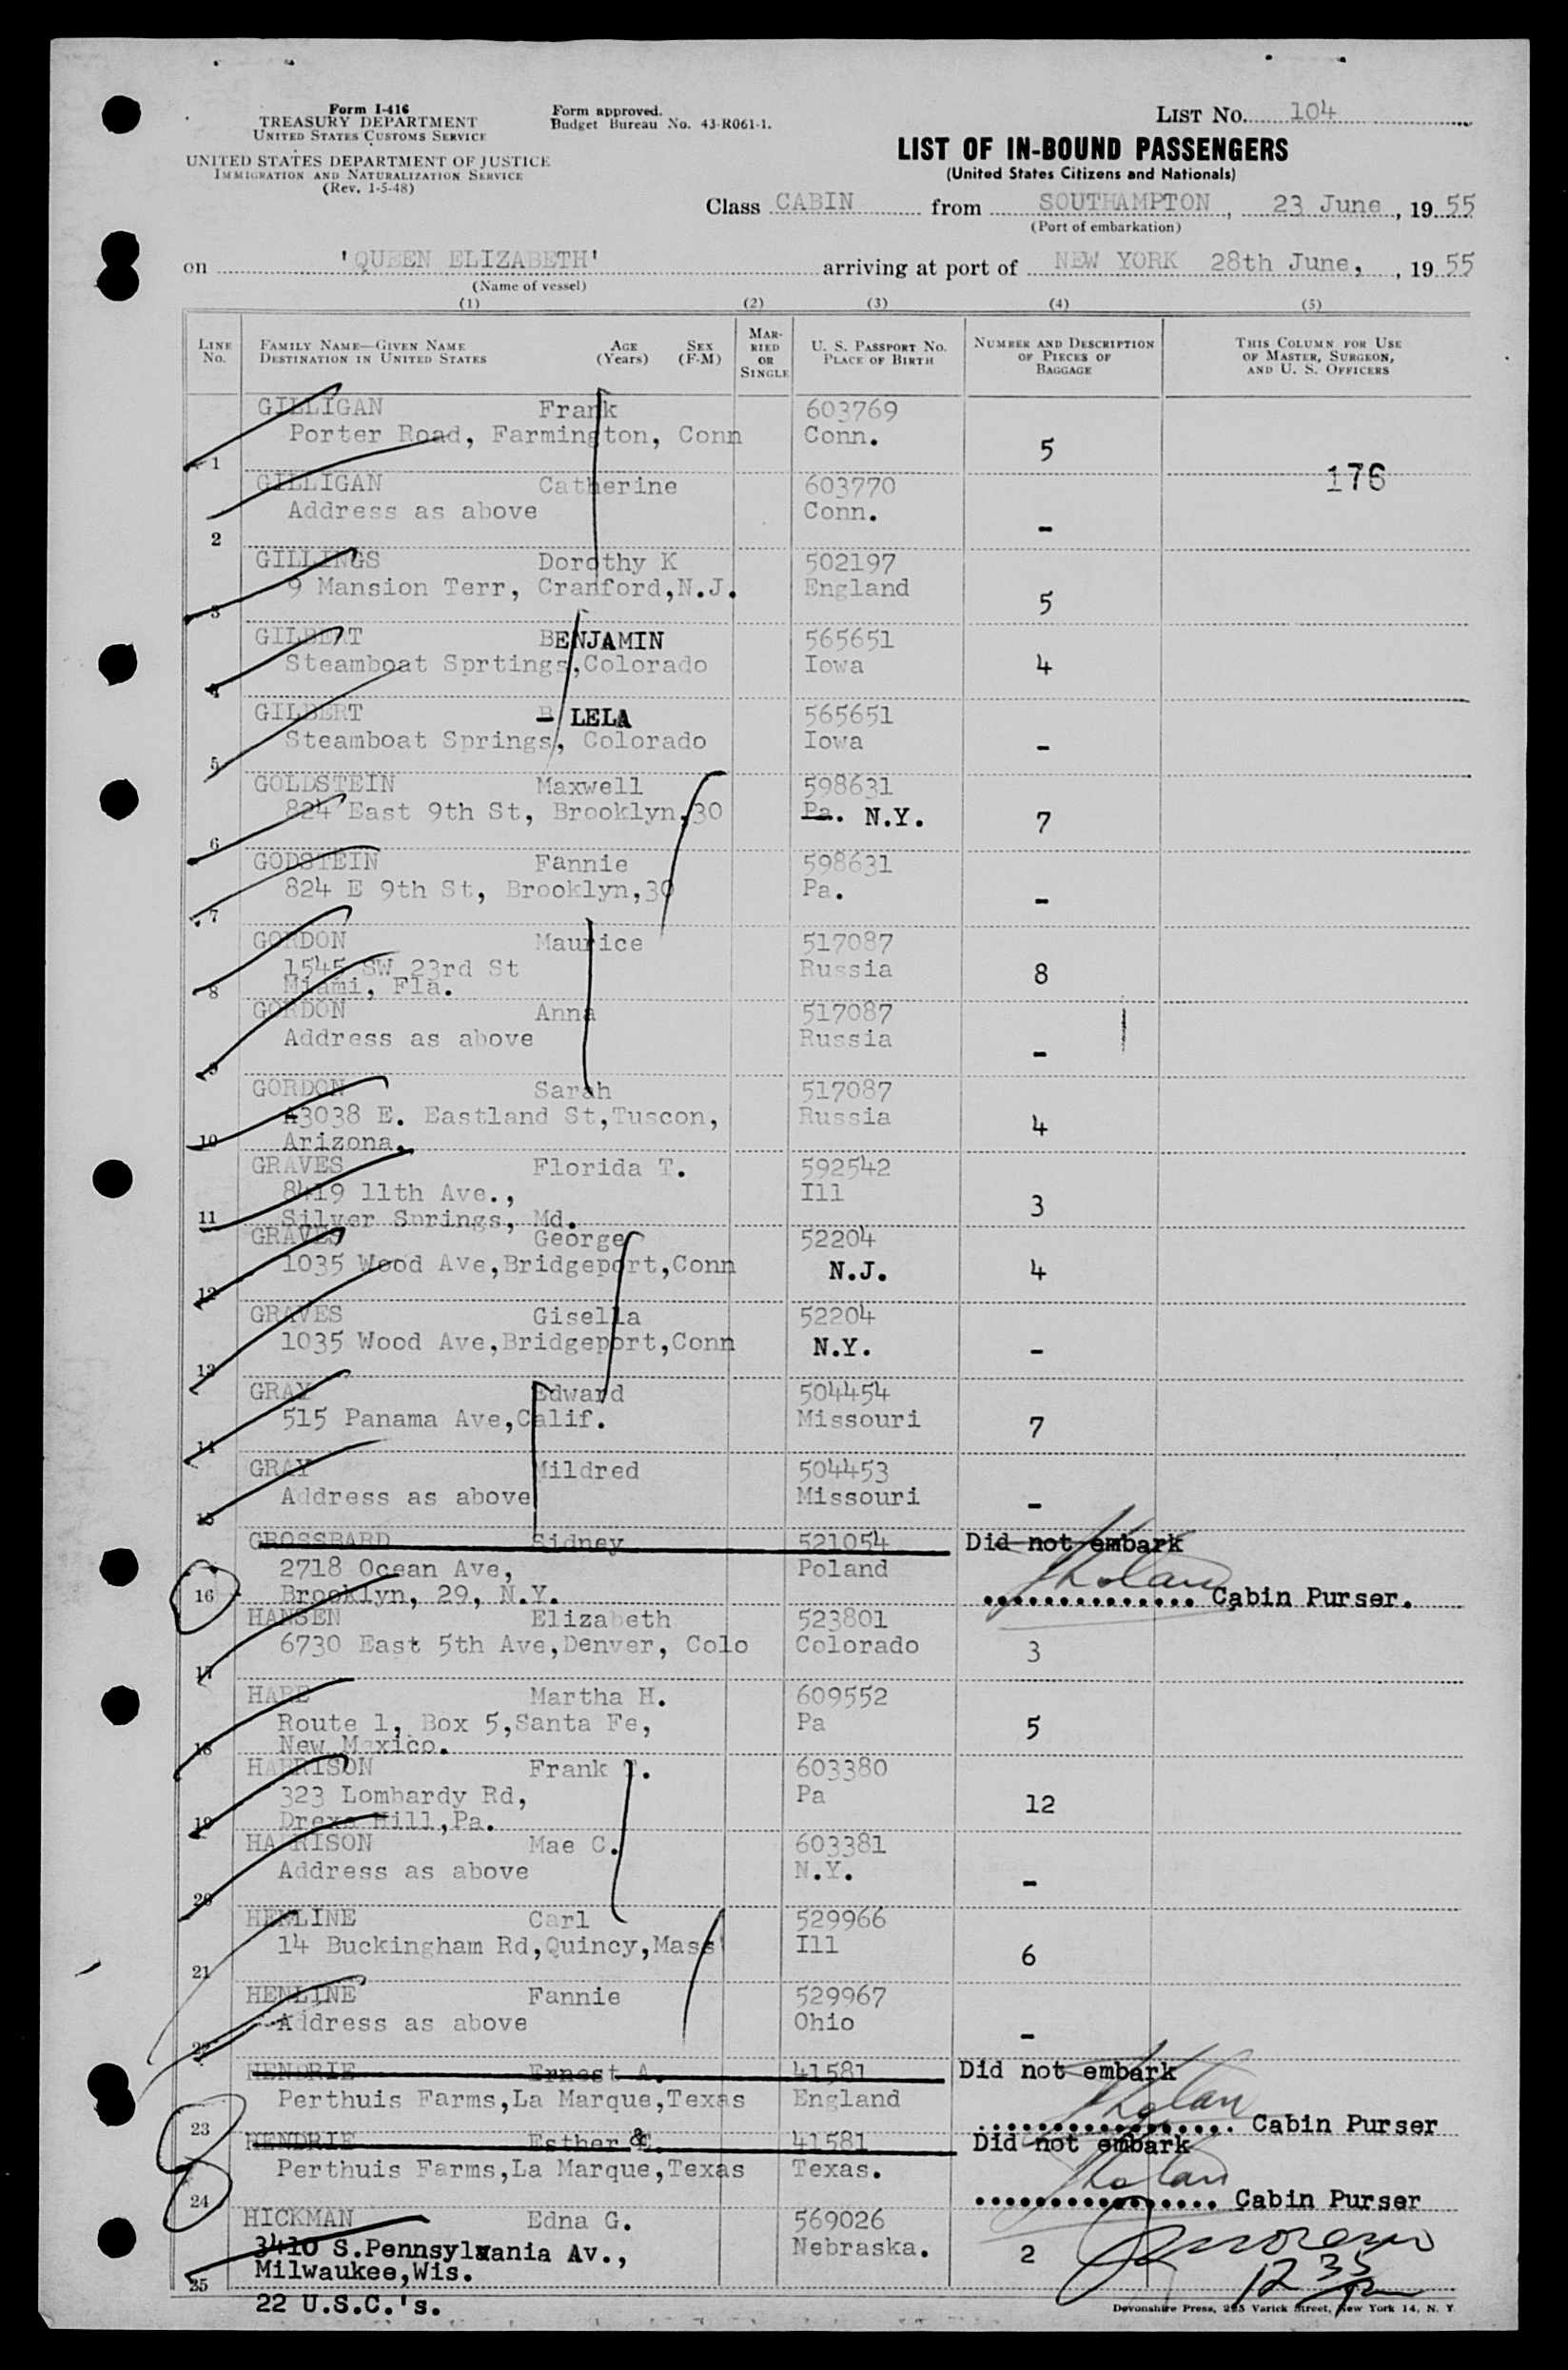 Form I-416
TREASURY DEPARTMENT
UNITED STATES CUSTOMS SERVICE
UNITED STATES DEPARTMENT OF JUSTICE
IMMIGRATION AND NATURALIZATION SERVICE
(Rev. 1-5-48)
Form approved.
Budget Bureau No. 43-R061-1.
LIST NO. 104
LIST OF IN-BOUND PASSENGERS
(United States Citizens and Nationals)
Class CABIN from SOUTHAMPTON, 23 June, 1955
(Port of embarkation)
on 'QUEEN ELIZABETH' arriving at port of NEW YORK 28th June, , 1955
(Name of vessel)
(1) (2) (3) (4) (5)
LINE No.
FAMILY NAME—GIVEN NAME
DESTINATION IN UNITED STATES
AGE (Years)
SEX (F-M)
MARRIED OR SINGLE
U. S. PASSPORT NO.
PLACE OF BIRTH
NUMBER AND DESCRIPTION OF PIECES OF BAGGAGE
THIS COLUMN FOR USE OF MASTER, SURGEON, AND U. S. OFFICERS
GILLIGAN Frank 603769
Porter Road, Farmington, Conn Conn. 5
1
176
GILLIGAN Catherine 603770
Address as above Conn. -
2
GILLINGS Dorothy K 502197
9 Mansion Terr, Cranford,N.J. England 5
3
GILBERT BENJAMIN 565651
Steamboat Sprtings,Colorado Iowa 4
4
GILBERT B LELA 565651
Steamboat Springs, Colorado Iowa -
5
GOLDSTEIN Maxwell 598631
824 East 9th St, Brooklyn,30 Pa. N.Y. 7
6
GODSTEIN Fannie 598631
824 E 9th St, Brooklyn,30 Pa. -
7
GORDON Maurice 517087
1545 SW 23rd St Russia 8
Miami, Fla.
8
GORDON Anna 517087
Address as above Russia -
9
GORDON Sarah 517087
3038 E. Eastland St,Tuscon, Russia 4
Arizona.
10
GRAVES Florida T. 592542
8419 11th Ave., Ill 3
Silver Springs, Md.
11
GRAVES George 52204
1035 Wood Ave,Bridgeport,Conn N.J. 4
12
GRAVES Gisella 52204
1035 Wood Ave,Bridgeport,Conn N.Y. -
13
GRAY Edward 504454
515 Panama Ave,Calif. Missouri 7
14
GRAY Mildred 504453
Address as above Missouri -
15
GROSSBARD Sidney 521054 Did not embark
2718 Ocean Ave, Poland
Brooklyn, 29, N.Y. .............. Cabin Purser.
16
HANSEN Elizabeth 523801
6730 East 5th Ave,Denver, Colo Colorado 3
17
HARE Martha H. 609552
Route 1, Box 5,Santa Fe, Pa 5
New Mexico.
18
HARRISON Frank T. 603380
323 Lombardy Rd, Pa 12
Drexe Hill,Pa.
19
HARRISON Mae C. 603381
Address as above N.Y. -
20
HENLINE Carl 529966
14 Buckingham Rd,Quincy,Mass Ill 6
21
HENLINE Fannie 529967
Address as above Ohio -
22
HENDRIE Ernest A. 41581 Did not embark
Perthuis Farms,La Marque,Texas England
23 ................ Cabin Purser
HENDRIE Esther & E. 41581 Did not embark
Perthuis Farms,La Marque,Texas Texas.
24 ................ Cabin Purser
HICKMAN Edna G. 569026
3410 S.Pennsylvania Av., Nebraska. 2
Milwaukee,Wis.
25
12 35
22 U.S.C.'s.
Devonshire Press, 225 Varick Street, New York 14, N. Y.